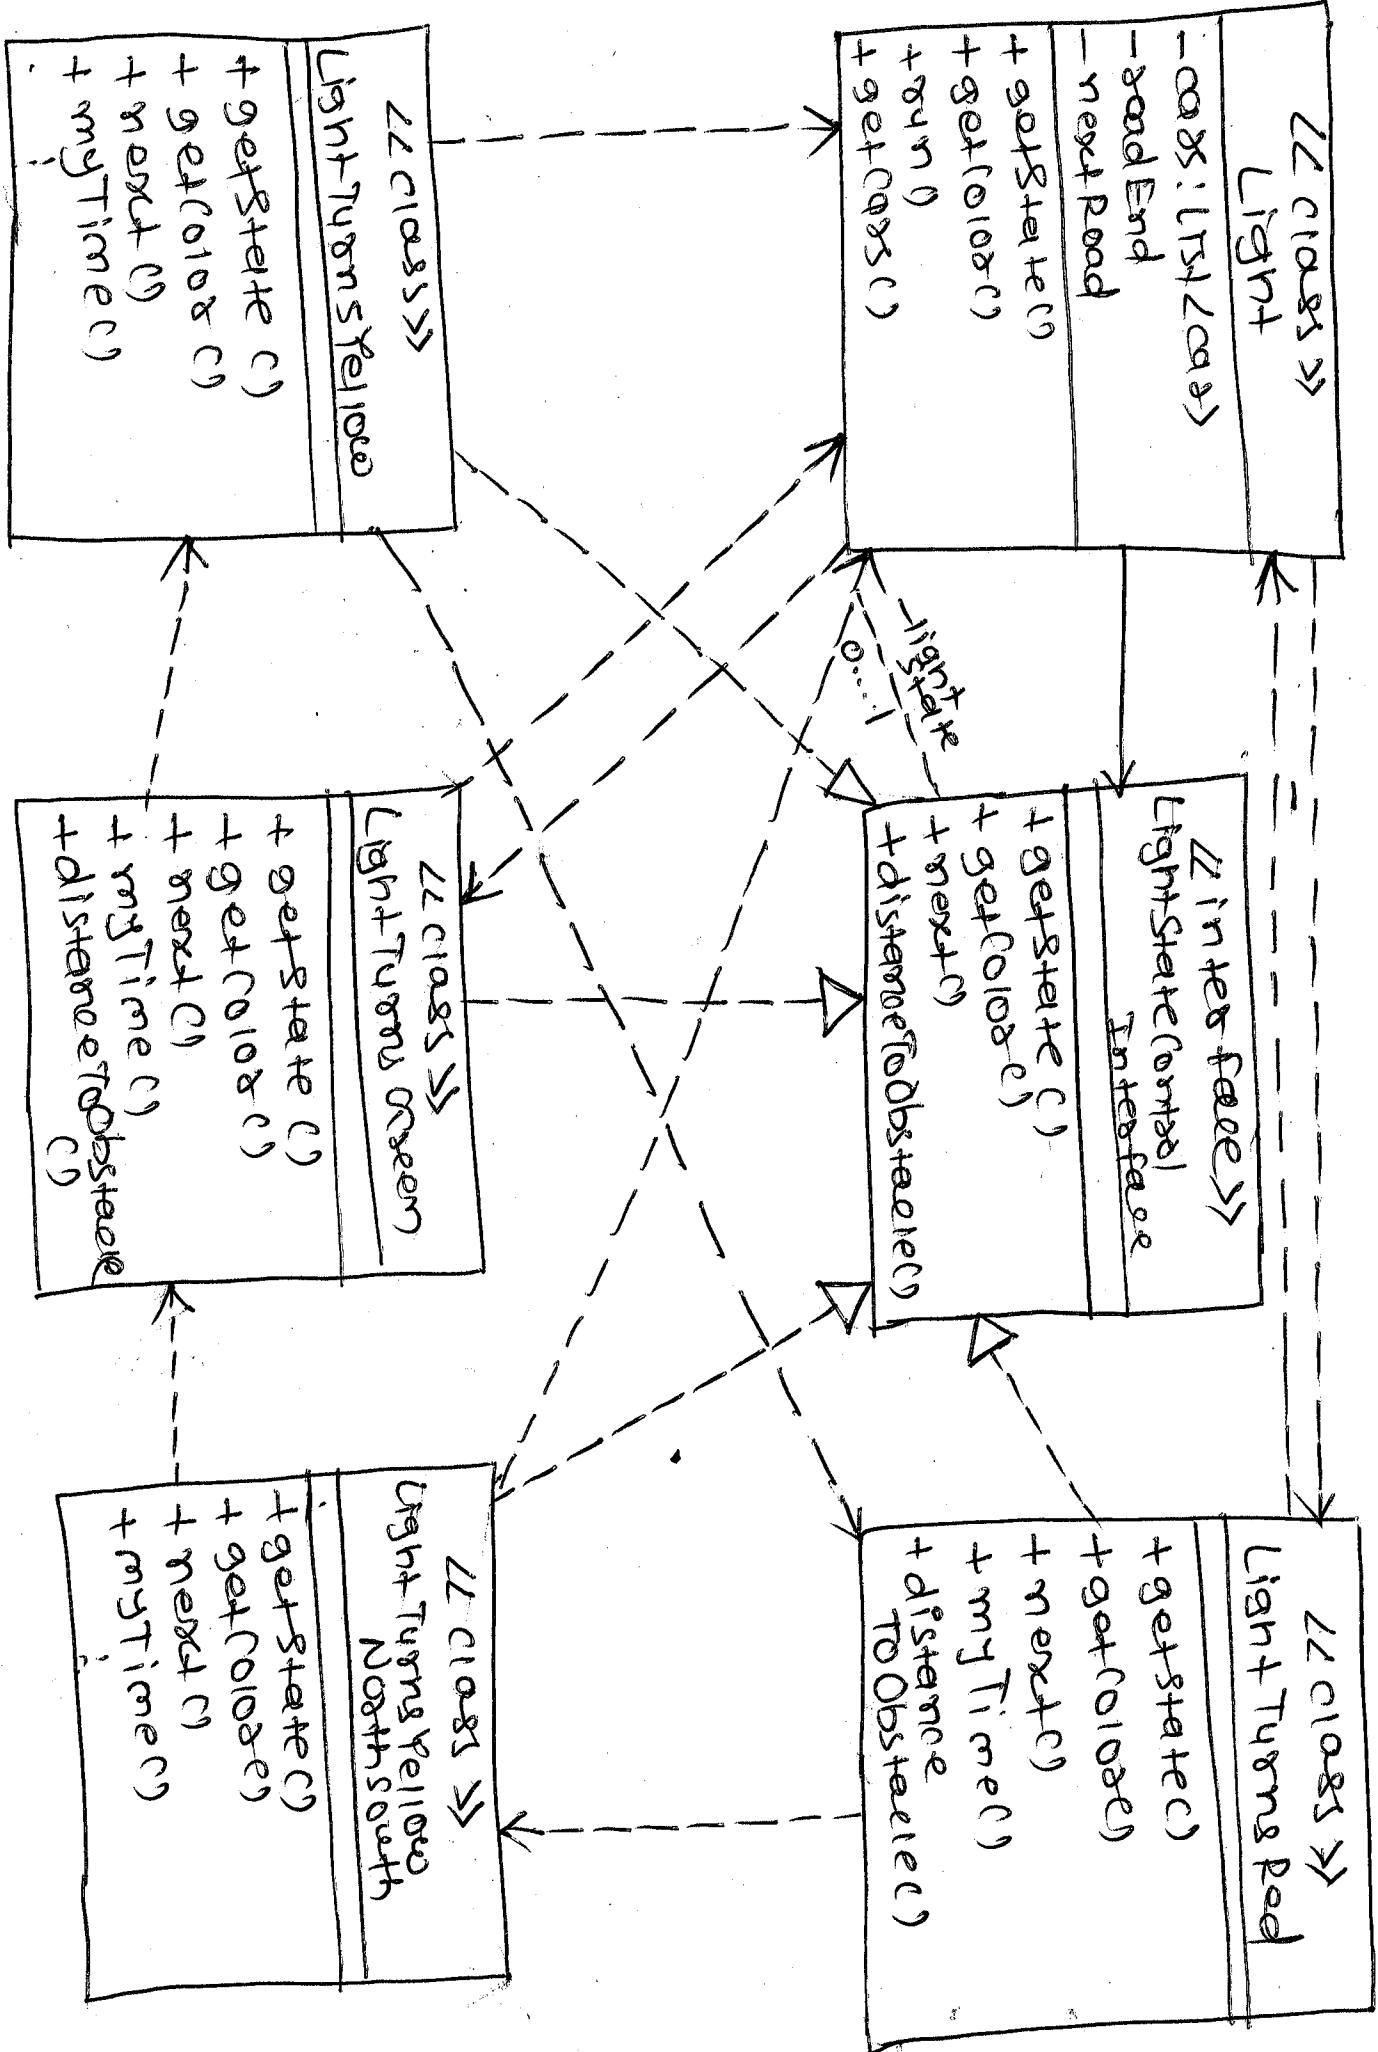 <<class>>
Light
-cars:List<car>
-roadEnd
-nextRoad
+getState()
+getColor()
+run()
+getCars()
<<interface>>
LightStateControl
Interface
+getState()
+getColor()
+next()
+distanceToObstacle()
<<class>>
LightTurnsRed
+getState()
+getColor()
+next()
+myTime()
+distance
ToObstacle()
-light
state
0...1
<<class>>
LightTurnsYellow
+getState()
+getColor()
+next()
+myTime()
<<class>>
LightTurnsGreen
+getState()
+getColor()
+next()
+myTime()
+distanceToObstacle
()
<<class>>
LightTurnsYellow
NorthSouth
+getState()
+getColor()
+next()
+myTime()